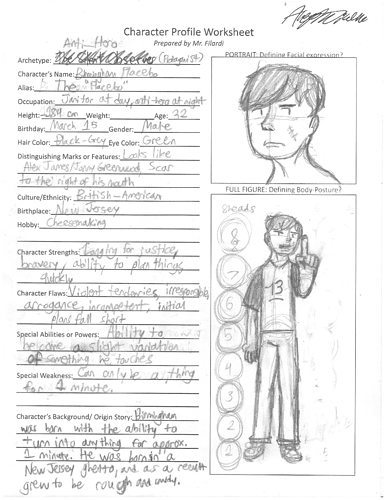 Character Profile Worksheet
Prepared by Mr. Filardi
Anti-Hero
Archetype: (Protagonist)
Character's Name: Birmingham Placebo
Alias: The "Placebo"
Occupation: Janitor at day, anti-hero at night
Height: 189 cm Weight: Age: 32
Birthday: March 15 Gender: Male
Hair Color: Black-Grey Eye Color: Green
Distinguishing Marks or Features: Looks like
Alex James/Jonny Greenwood Scar
to the right of his mouth
Culture/Ethnicity: British-American
Birthplace: New Jersey
Hobby: Cheesemaking
Character Strengths: Longing for justice,
bravery, ability to plan things
quickly
Character Flaws: Violent tendencies, irresponsible,
arrogance, incompetent, initial
plans fall short
Special Abilities or Powers: Ability to
become a slight variation
of something he touches
Special Weakness: Can only be a thing
for 1 minute.
Character's Background/ Origin Story: Birmingham
was born with the ability to
turn into anything for approx.
1 minute. He was born in a
New Jersey ghetto, and as a result
grew to be rough and
PORTRAIT: Defining Facial expression?
FULL FIGURE: Defining Body-Posture?
8 heads
8
7
6
5
4
3
2
13